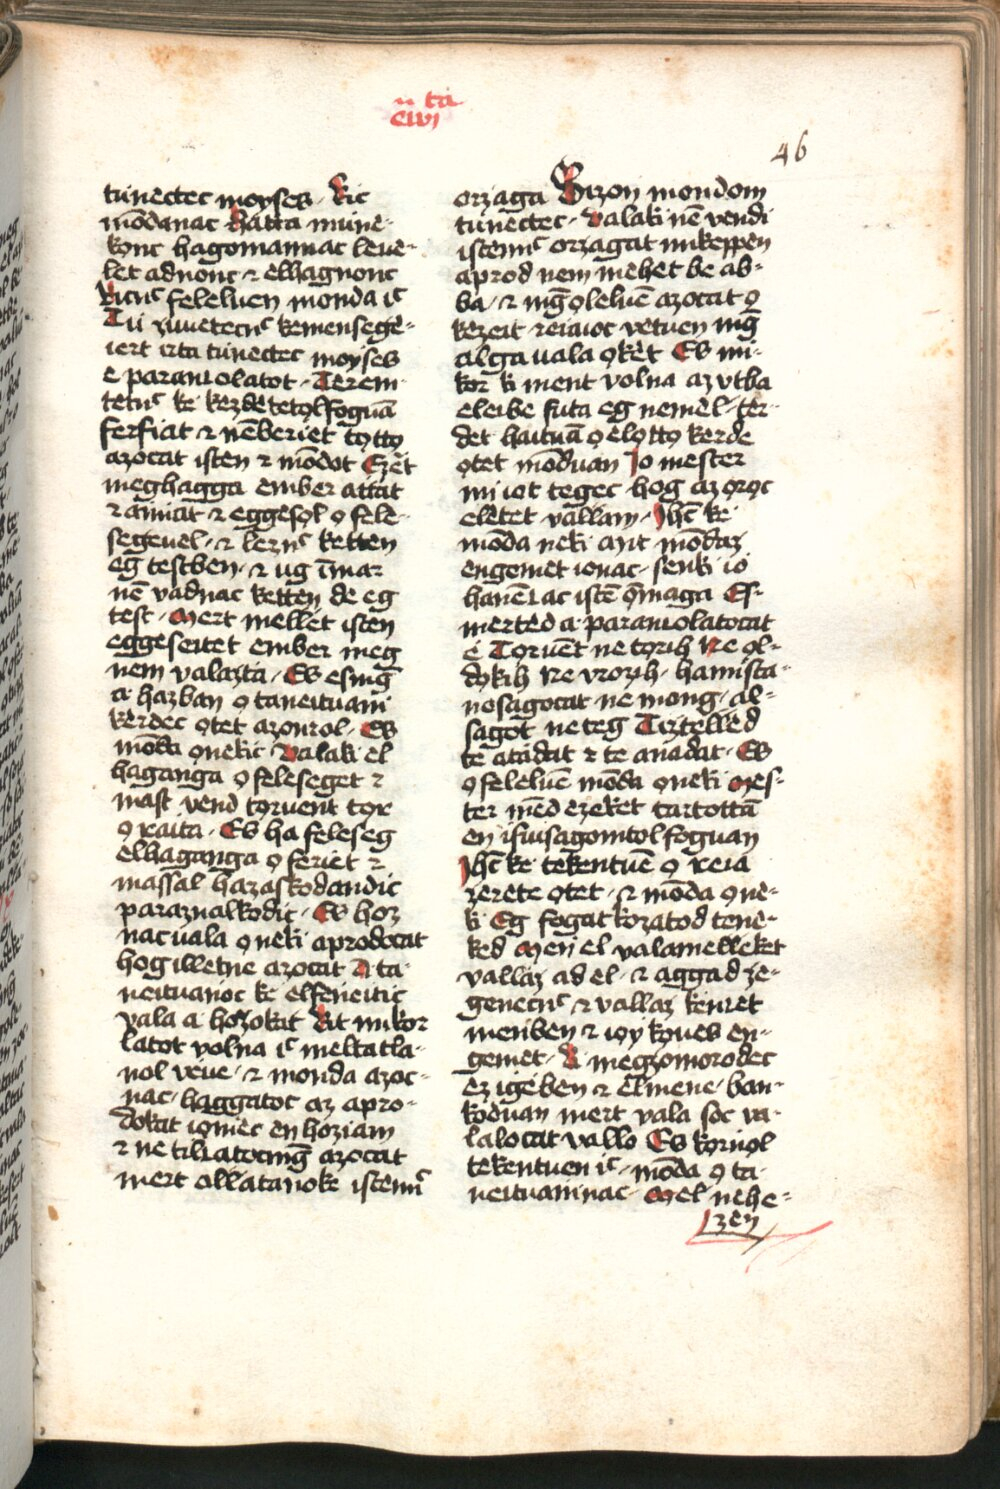 46
tūnectec moyses · Kic
mōdanac Hatta mūne-
konc hagomannac leue-
let adnonc ⁊ elhagnonc
Kicnc̄ feleluen monda ic̄
Tū zūuetecnc̄ kemensege-
iert irta tūnectec moyses
e paranͻolatot · Terem-
tetnc̄ ke kezdetetol foguā
ferfiat ⁊ nēberiet totto
azocat isten ⁊ mōdot Ezēt
meghagga ember attat
⁊ annat ⁊ eggesol o fele-
segeuel · ⁊ leznc̄ ketten
eg testben · ⁊ ug īmar
nē vadnac ketten de eg
test · Mert mellet isten
eggeseitet ember meg
nem valazta · Es esmeḡ
a hazban o taneituani
kerdec otet azonrol · Es
mōda onekic Valaki el
haganga o feleseget ⁊
mast vend toruent tor
o raita · Es ha feleseg
elhaganga o feriet ⁊
massal hazaskodandic
paraznalkodic · Es hoz
nacuala o neki aprodocat
hog illetne azocat A ta-
neituanioc ke elfeneitic
vala a hozokat Kit mikor
latot volna ic̄ meltatla-
nol veue · ⁊ monda azoc-
nac · haggatoc az apro-
dokat iomec en hoziam
⁊ ne tiliatocmḡ azocat
mert ollatanoke istenn̄c
orzaga Bizon mondom
tūnectec · Valaki nē vendi
istennc̄ orzagat mikeppen
aprod nem mehet be ab-
ba · ⁊ mḡ oleluē azocat o
kezeit reiaioc vetuen mḡ
alga uala oket Es mi-
kor ki ment volna az vtba
eleibe futa eg nemel · ter-
det haituā o elotto kerde
otet mōduan Jo mester
mi iot tegec hog az oroc
eletet vallam · Jhc̄ ke
mōda neki mit mōdaz
engemet ionac · senki io
hanēͻac istē ōmaga Es-
merted a · paranͻolatocat
e Toruēt ne torih Ne ol-
dokih Ne vrozih · hamista-
nosagocat ne mong · al-
sagot ne teg Tiztelled
te atadat ⁊ te anadat · Es
o feleluē mōda oneki Mes-
ter mēd ezeket tartottā
en ifiusagomtol foguan
Jhc̄ ke tekentuē o reia
zerete otet · ⁊ mōda one-
ki Eg fogatkozatod tene-
ked Men el valamelleket
vallaz ad el · ⁊ aggad ze-
genecnc̄ ⁊ vallaz kinͻet
menben ⁊ ioy koues en-
gemet · Ki megzomorodec
ez igeben ⁊ elmene · ban-
koduan mert vala soc va-
lalocat vallo Es kornol
tekentuen ic̄ · mōda o ta-
neituaninac · Mel nehe-
zen